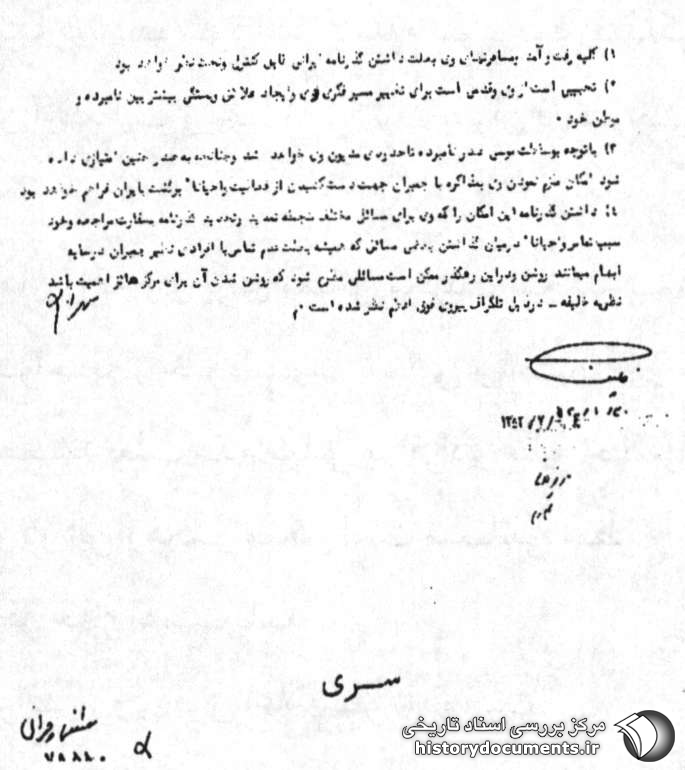 ۱) کلیه رفت و آمد ومسافرتهای وی بعلت داشتن گذرنامه ایرانی قابل کنترل وتحت نظر خواهد بود
۲) تحبیبی است از وی وقدمی است برای تغییر مسیر فکری وی وایجاد علائق وبستگی بیشتر بین نامبرده و
موطن خود ۰
۳) باتوجه بوساطت موسی صدر نامبرده تاحدودی مدیون وی خواهد شد وچنانچه به صدر چنین امتیازی داده
شود امکان ملزم نمودن وی بمذاکره با چمران جهت دست کشیدن از فعالیت واحیانا" برگشت بایران فراهم خواهد بود
٤) داشتن گذرنامه این امکان را که وی برای مسائل مختلف منجمله تمدید وتجدید گذرنامه بسفارت مراجعه وخود
سبب تماس واحیانا" درمیان گذاشتن بعضی مسائل که همیشه بعلت عدم تماس با افرادی نظیر چمران درسایه
ابهام میمانند روشن ودراین رهگذر ممکن است مسائلی مطرح شود که روشن شدن آن برای مرکز حائز اهمیت باشد
نظریه خلیفه – درذیل تلگراف بیروت فوق اظهار نظر شده است ۰م
۱۳۵۲/۷/
سری
۷۸۸۲۰
مرکز بررسی اسناد تاریخی
historydocuments.ir